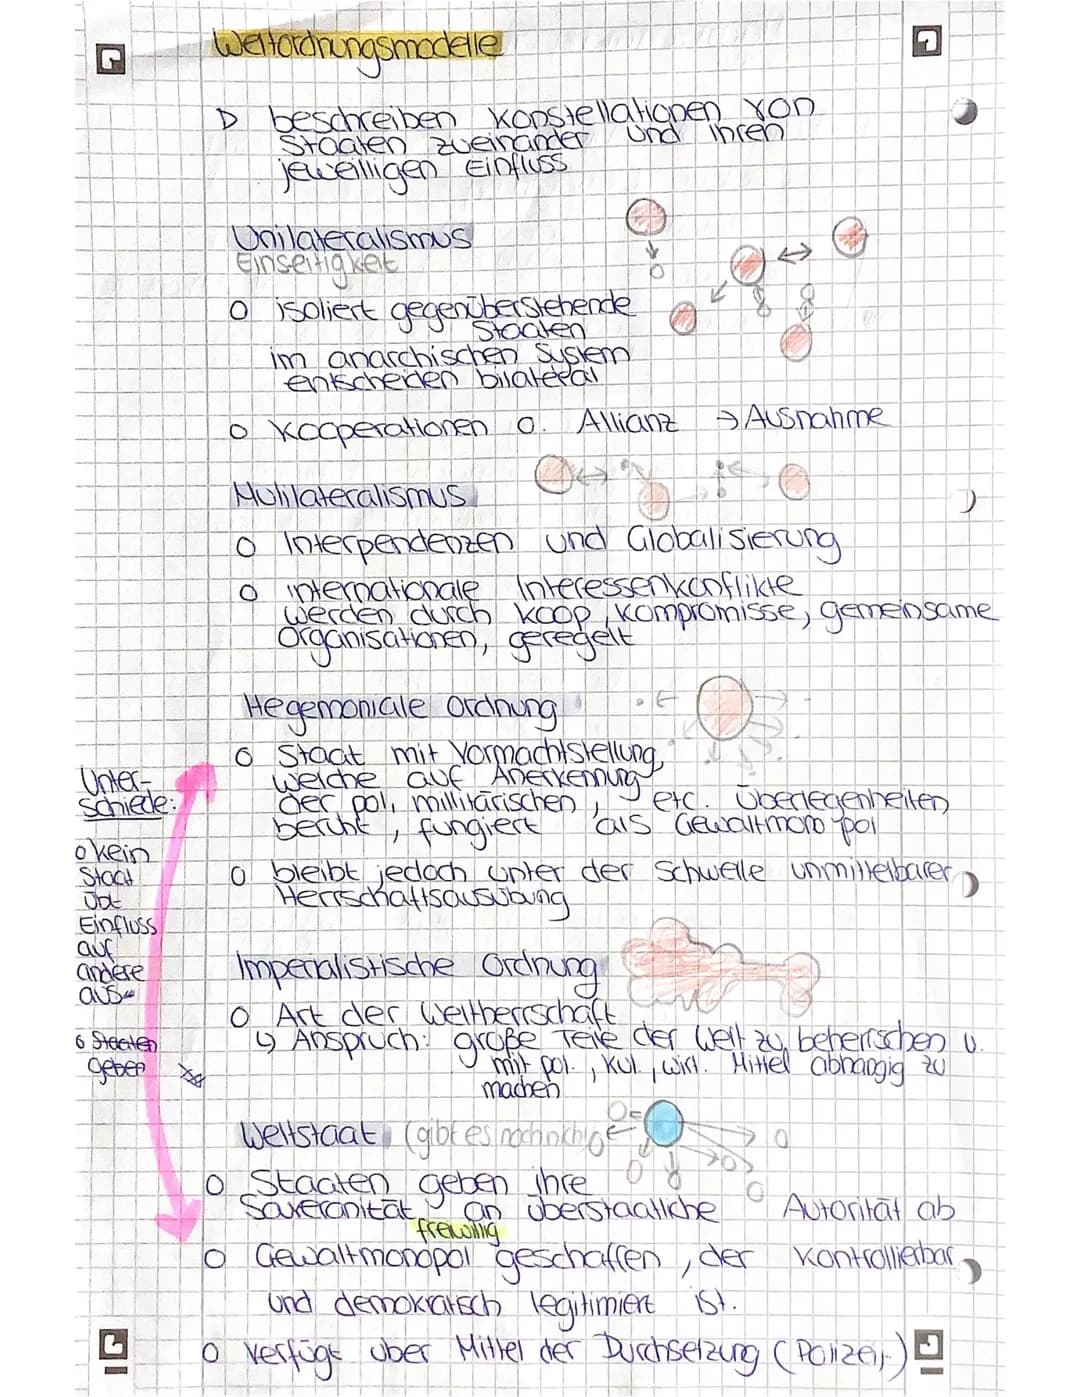 Weltordnungsmodelle
▷ beschreiben Konstellationen von
Staaten zueinander und ihren
jeweiligen Einfluss
Unilateralismus
Einseitigkeit
o isoliert gegenüberstehende
Staaten
im anarchischen System
entscheiden bilateral
o Kooperationen o. Allianz → Ausnahme
Multilateralismus
o Interpendenzen und Globalisierung
o internationale Interessenkonflikte
werden durch Koop, Kompromisse, gemeinsame
Organisationen, geregelt
Hegemoniale Ordnung
o Staat mit Vormachtstellung,
welche auf Anerkennung
der pol, millitärischen, etc. Überlegenheiten
beruht, fungiert als Gewaltmonopol
o bleibt jedoch unter der Schwelle unmittelbarer
Herrschaftsausübung
Unter-
schiede:
o kein
Staat
übt
Einfluss
auf
andere
aus
o Staaten
geben
Imperialistische Ordnung
o Art der Weltherrschaft
↳ Anspruch: große Teile der Welt zu beherrschen u.
mit pol., kul., wirt. Mittel abhängig zu
machen
Weltstaat (gibt es noch nicht)
o Staaten geben ihre
Souveränität an überstaatliche Autorität ab
freiwillig
o Gewaltmonopol geschaffen, der kontrollierbar
und demokratisch legitimiert ist.
o verfügt über Mittel der Durchsetzung (Polizei,-)